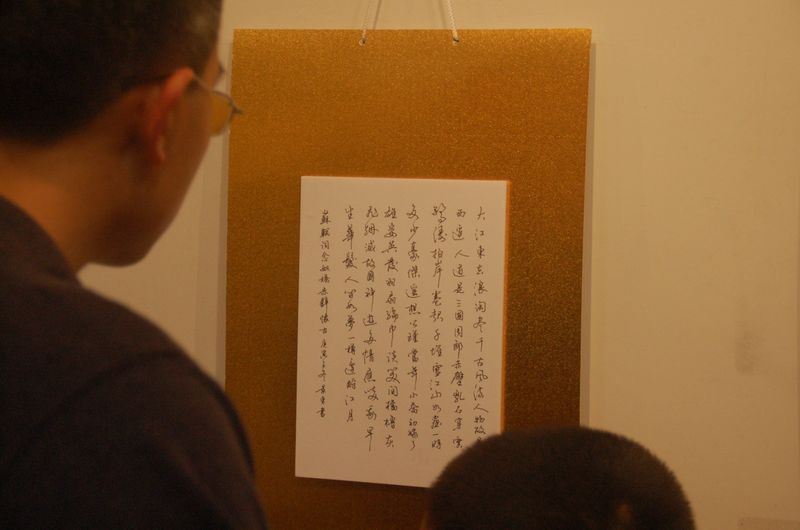 大江東去浪淘盡千古風流人物故
西邊人道是三國周郎赤壁亂石穿空
驚濤拍岸卷起千堆雪江山如畫一時
多少豪傑遙想公瑾當年小喬初嫁了
雄姿英發羽扇綸巾談笑間檣櫓灰
飛煙滅故國神遊多情應笑我早
生華髮人間如夢一樽還酹江月
蘇軾詞念奴嬌赤壁懷古庚寅之冬書